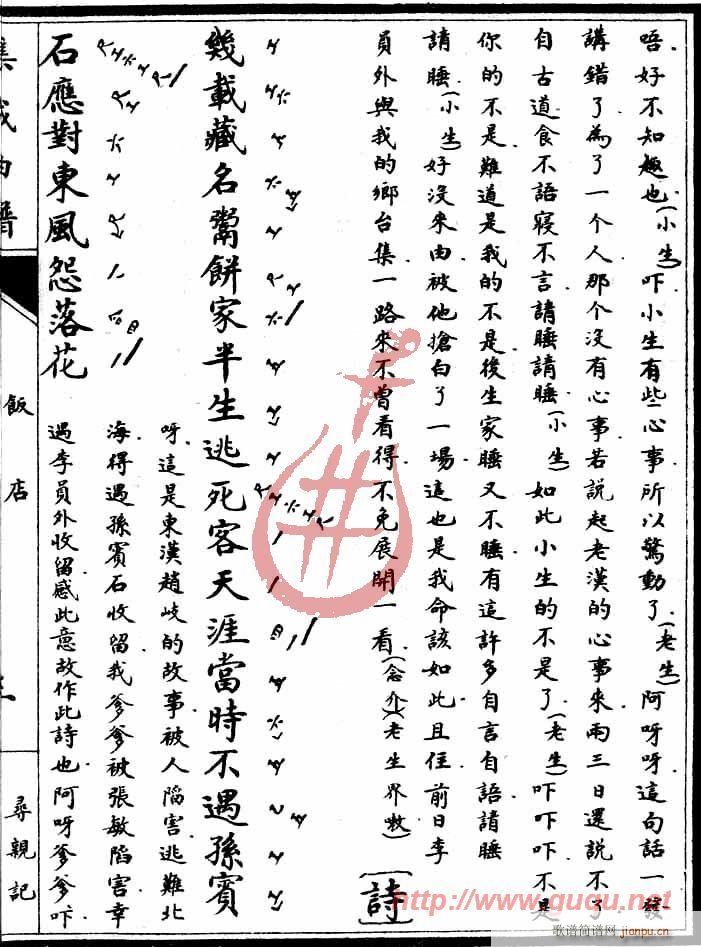 唔好不知趣也(小生)吓小生有些心事所以驚動了(老生)阿呀呀這句話一發
講錯了為了一个人那个沒有心事若說起老漢的心事來兩三日還說不了
自古道食不語寢不言請睡請睡(小生)如此小生的不是了(老生)吓吓吓不是
你的不是難道是我的不是後生家睡又不睡有這許多自言自語請睡
請睡(小生)好沒來由被他搶白了一場這也是我命該如此且住前日李
員外與我的鄉台集一路來不曾看得不免展開一看(念介)(老生界嗽)[詩]
幾載藏名鬻餅家半生逃死客天涯當時不遇孫賓
石應對東風怨落花
呀這是東漢趙岐的故事被人陷害逃難北
海得遇孫賓石收留我爹爹被張敏陷害幸
遇李員外收留感此意故作此詩也阿呀爹爹吓
集成曲譜
飯店
尋親記
http://www.guqu.net
歌谱简谱网
jianpu.cn